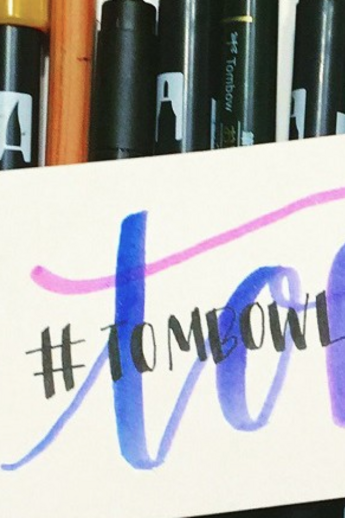 Tombow
to
#TOMBOWL